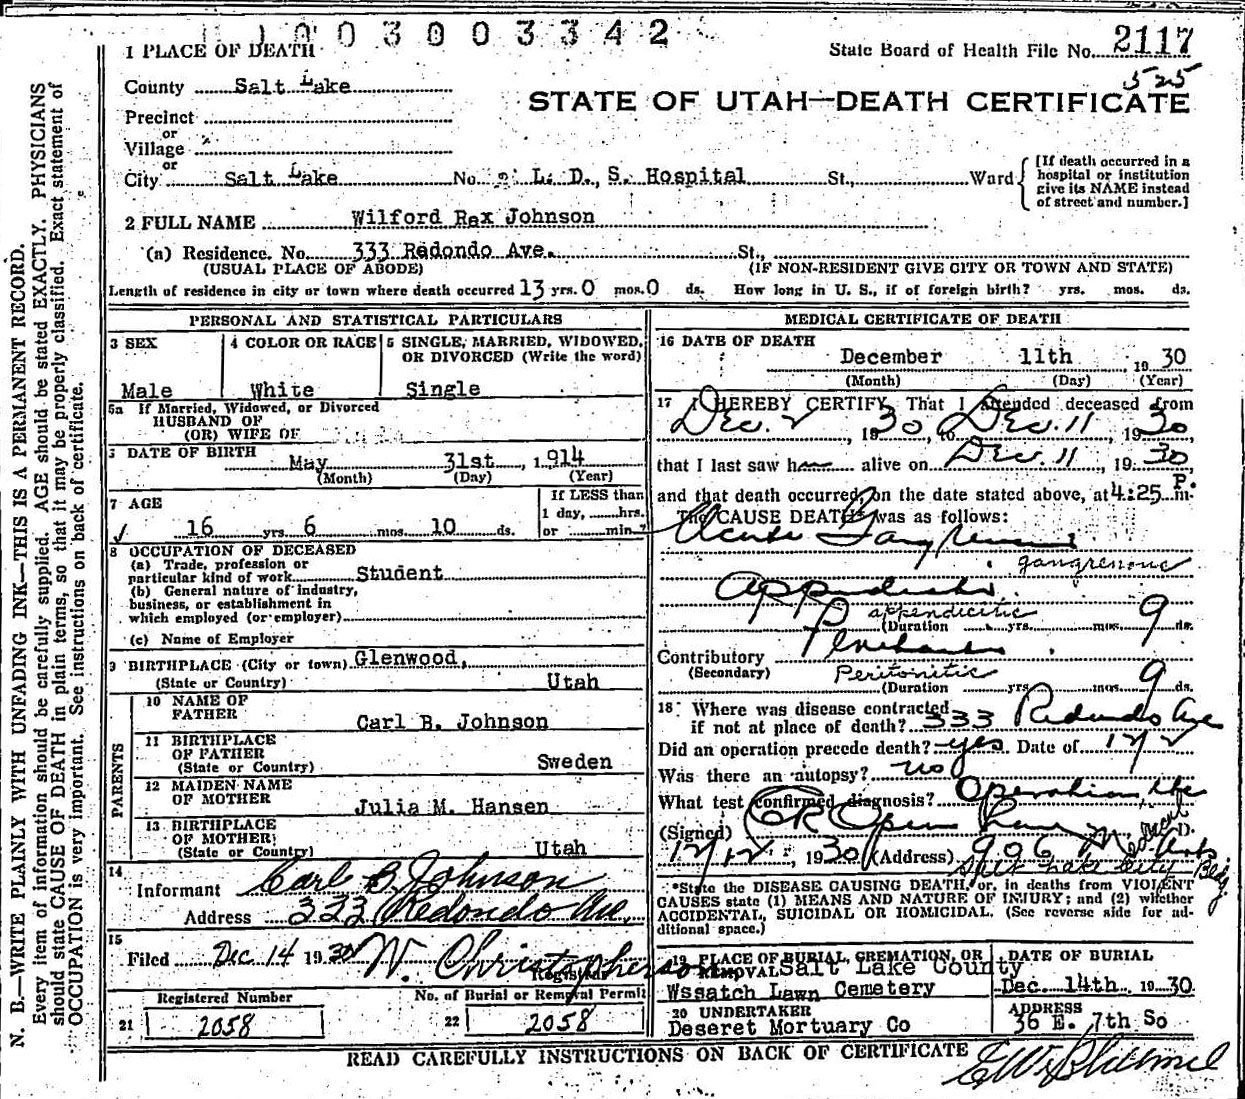 1 0 0 3 0 0 3 3 4 2
1 PLACE OF DEATH
State Board of Health File No. 2117
525
County Salt Lake
STATE OF UTAH—DEATH CERTIFICATE
Precinct
or
Village
or
City Salt Lake No. L. D. S. Hospital St., Ward
[If death occurred in a hospital or institution give its NAME instead of street and number.]
2 FULL NAME Wilford Rex Johnson
(a) Residence. No. 333 Redondo Ave. St.,
(USUAL PLACE OF ABODE) (IF NON-RESIDENT GIVE CITY OR TOWN AND STATE)
Length of residence in city or town where death occurred 13 yrs. 0 mos. 0 ds. How long in U. S., if of foreign birth? yrs. mos. ds.
PERSONAL AND STATISTICAL PARTICULARS
3 SEX
Male
4 COLOR OR RACE
White
5 SINGLE, MARRIED, WIDOWED, OR DIVORCED (Write the word)
Single
5a If Married, Widowed, or Divorced
HUSBAND OF
(OR) WIFE OF
6 DATE OF BIRTH May 31st, 1914
(Month) (Day) (Year)
7 AGE
16 yrs. 6 mos. 10 ds.
If LESS than
1 day, hrs.
or min.?
8 OCCUPATION OF DECEASED
(a) Trade, profession or
particular kind of work Student
(b) General nature of industry,
business, or establishment in
which employed (or employer)
(c) Name of Employer
9 BIRTHPLACE (City or town) Glenwood,
(State or Country) Utah
PARENTS
10 NAME OF
FATHER Carl B. Johnson
11 BIRTHPLACE
OF FATHER Sweden
(State or Country)
12 MAIDEN NAME
OF MOTHER Julia M. Hansen
13 BIRTHPLACE
OF MOTHER
(State or Country) Utah
14
Informant Carl B. Johnson
Address 333 Redondo Ave.
15
Filed Dec 14 1930 W. Christopherson
Registrar
Registered Number
21 2058
No. of Burial or Removal Permit
22 2058
MEDICAL CERTIFICATE OF DEATH
16 DATE OF DEATH
December 11th 1930
(Month) (Day) (Year)
17 I HEREBY CERTIFY, That I attended deceased from
Dec. 2, 1930, to Dec. 11, 1930
that I last saw h alive on Dec. 11, 1930
and that death occurred, on the date stated above, at 4:25 P. m.
The CAUSE DEATH* was as follows:
Acute Gangrenous
gangrenous
Appendicitis
appendicitis
(Duration yrs. mos. 9 ds.
Contributory Peritonitis
(Secondary) Peritonitis
(Duration yrs. mos. 9 ds.
18 Where was disease contracted
if not at place of death? 333 Redondo Ave
Did an operation precede death? yes Date of 12/2
Was there an autopsy? no
What test confirmed diagnosis? Operation, etc
(Signed) M. D.
12/12, 1930 (Address) 906 Medical Arts Bldg.
Salt Lake City
*State the DISEASE CAUSING DEATH, or, in deaths from VIOLENT
CAUSES state (1) MEANS AND NATURE OF INJURY; and (2) whether
ACCIDENTAL, SUICIDAL OR HOMICIDAL. (See reverse side for additional space.)
19 PLACE OF BURIAL, CREMATION, OR
REMOVAL Salt Lake County
Wssatch Lawn Cemetery
DATE OF BURIAL
Dec. 14th, 1930
20 UNDERTAKER
Deseret Mortuary Co
ADDRESS
36 E. 7th So
READ CAREFULLY INSTRUCTIONS ON BACK OF CERTIFICATE
N. B.—WRITE PLAINLY WITH UNFADING INK—THIS IS A PERMANENT RECORD.
Every item of information should be carefully supplied. AGE should be stated EXACTLY. PHYSICIANS
should state CAUSE OF DEATH in plain terms, so that it may be properly classified. Exact statement of
OCCUPATION is very important. See instructions on back of certificate.